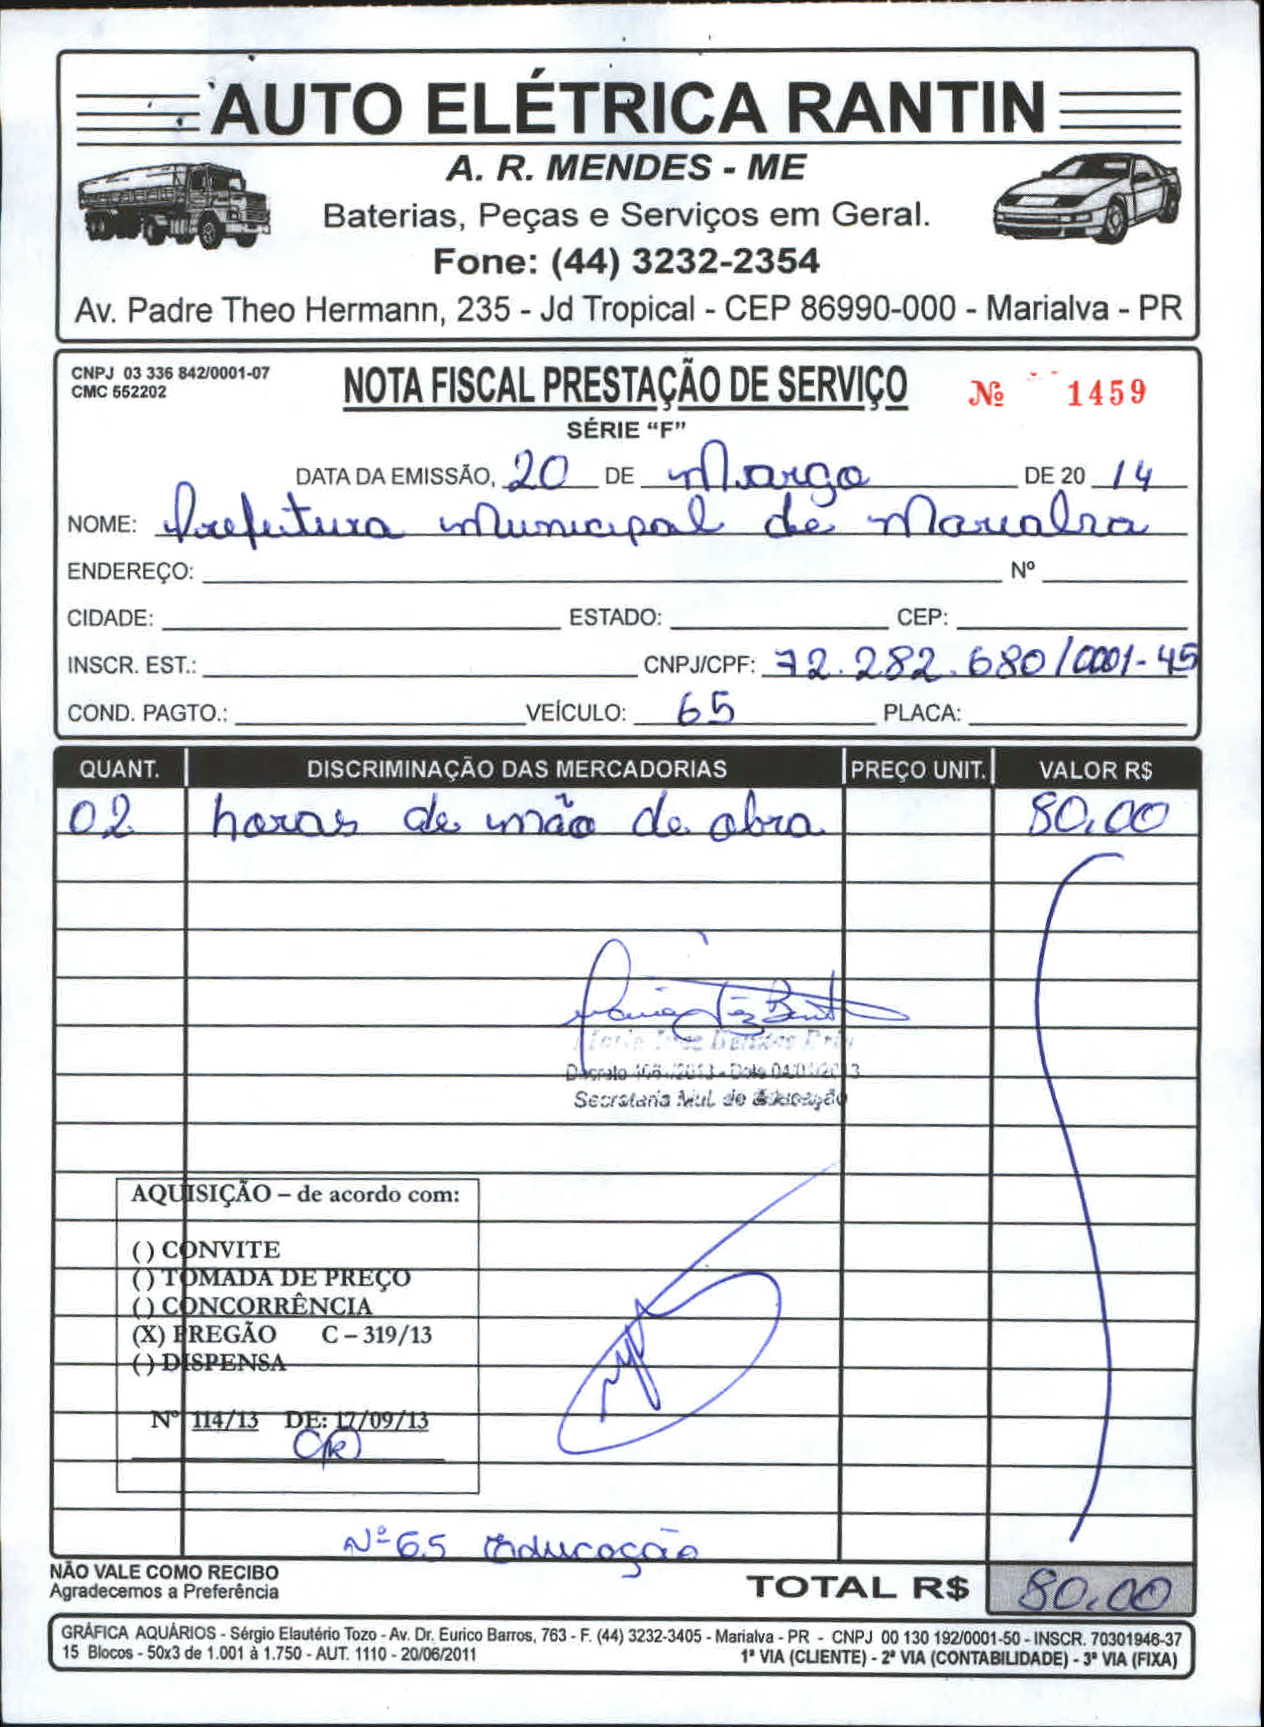 AUTO ELÉTRICA RANTIN
A. R. MENDES - ME
Baterias, Peças e Serviços em Geral.
Fone: (44) 3232-2354
Av. Padre Theo Hermann, 235 - Jd Tropical - CEP 86990-000 - Marialva - PR
CNPJ 03 336 842/0001-07
CMC 552202
NOTA FISCAL PRESTAÇÃO DE SERVIÇO
Nº 1459
SÉRIE “F”
DATA DA EMISSÃO, 20 DE Março DE 20 14
NOME: Prefeitura Municipal de Marialva
ENDEREÇO: Nº
CIDADE: ESTADO: CEP:
INSCR. EST.: CNPJ/CPF: 72.282.680/0001-45
COND. PAGTO.: VEÍCULO: 65 PLACA:
QUANT. DISCRIMINAÇÃO DAS MERCADORIAS PREÇO UNIT. VALOR R$
02 horas de mão de obra 80,00
Secretaria Mul. de Educação
AQUISIÇÃO – de acordo com:
( ) CONVITE
( ) TOMADA DE PREÇO
( ) CONCORRÊNCIA
(X) PREGÃO C – 319/13
( ) DISPENSA
Nº 114/13 DE: 17/09/13
Nº 65 Educação
NÃO VALE COMO RECIBO
Agradecemos a Preferência
TOTAL R$ 80,00
GRÁFICA AQUÁRIOS - Sérgio Elautério Tozo - Av. Dr. Eurico Barros, 763 - F. (44) 3232-3405 - Marialva - PR - CNPJ 00 130 192/0001-50 - INSCR. 70301946-37
15 Blocos - 50x3 de 1.001 à 1.750 - AUT. 1110 - 20/06/2011 1ª VIA (CLIENTE) - 2ª VIA (CONTABILIDADE) - 3ª VIA (FIXA)